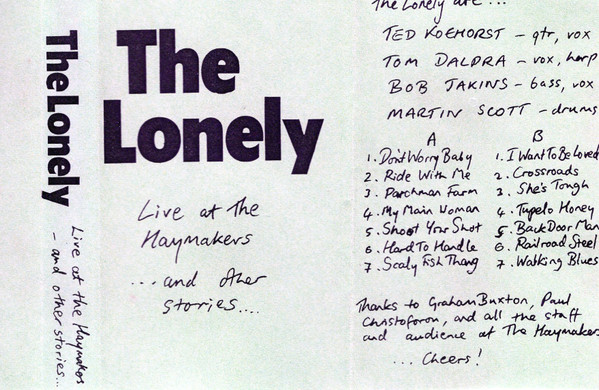 The Lonely
Live at the Haymakers
- and other stories...
The
Lonely
Live at The
Haymakers
...and other
stories....
The Lonely are...
TED KOEHORST - gtr, vox
TOM DALDRA - vox, harp
BOB JAKINS - bass, vox
MARTIN SCOTT - drums
A
1. Don't Worry Baby
2. Ride With Me
3. Parchman Farm
4. My Main Woman
5. Shoot Your Shot
6. Hard To Handle
7. Scaly Fish Thang
B
1. I Want To Be Loved
2. Crossroads
3. She's Tough
4. Tupelo Honey
5. Back Door Man
6. Railroad Steel
7. Walking Blues
Thanks to Graham Buxton, Paul
Christoforou, and all the staff
and audience at The Haymakers
... Cheers!